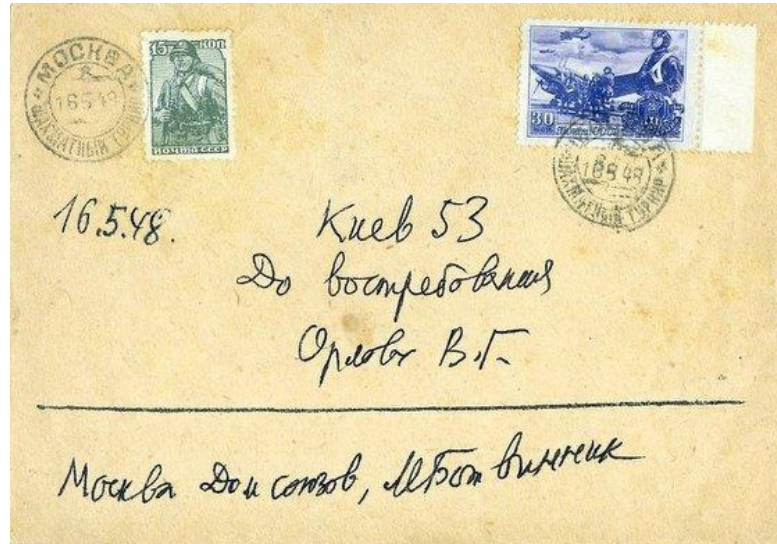 МОСКВА
16 5 48
ШАХМАТНЫЙ ТУРНИР
15 КОП
ПОЧТА СССР
30
16 5 48
ШАХМАТНЫЙ ТУРНИР
16.5.48.
Киев 53
До востребования
Орлову В.Г.
Москва Дом союзов, М Ботвинник